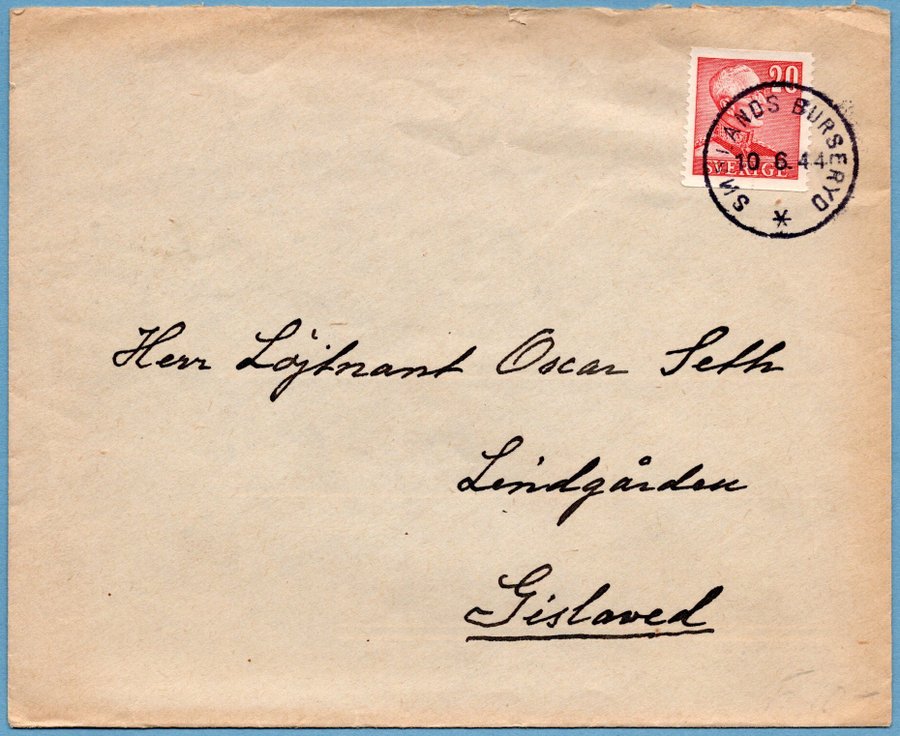 20
SVERIGE
SMÅLANDS BURSERYD
10 6.44
Herr Löjtnant Oscar Seth
Lindgården
Gislaved